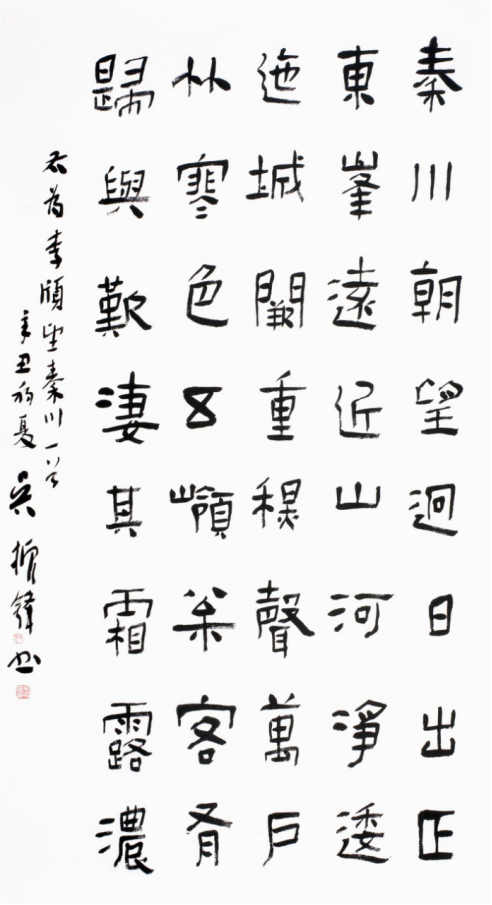 秦川朝望迥日出正
東峯遠近山河淨逶
迤城闕重穐聲萬戶
竹寒色五嶺枀客有
歸與歎淒其霜露濃
右為李頎望秦川一首
辛丑初夏 吳振鋒书